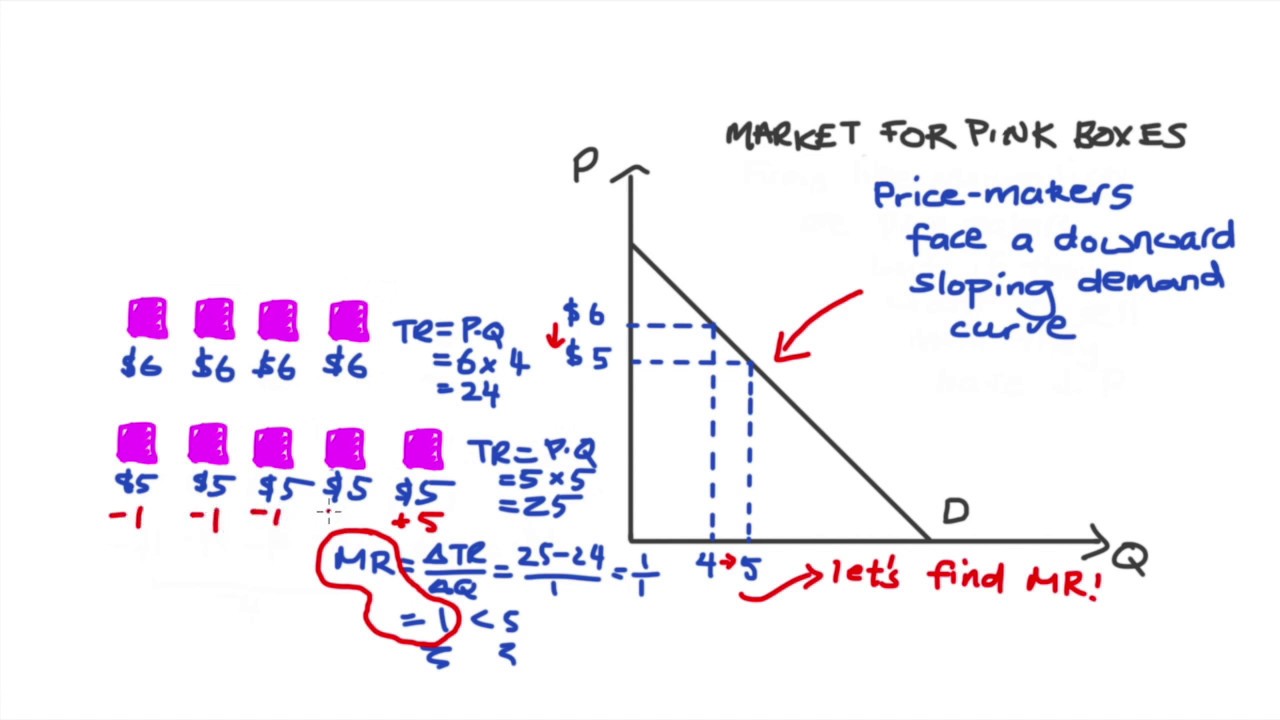 MARKET FOR PINK BOXES
P
Price-makers
face a downward
sloping demand
curve
$6 $6 $6 $6
TR = P·Q
= 6 x 4
= 24
$6
$5
$5 $5 $5 $5 $5
-1 -1 -1 +5
TR = P·Q
= 5 x 5
= 25
D
Q
4 → 5
let's find MR!
MR = ΔTR/ΔQ = 25-24/1 = 1/1
= 1 < 5